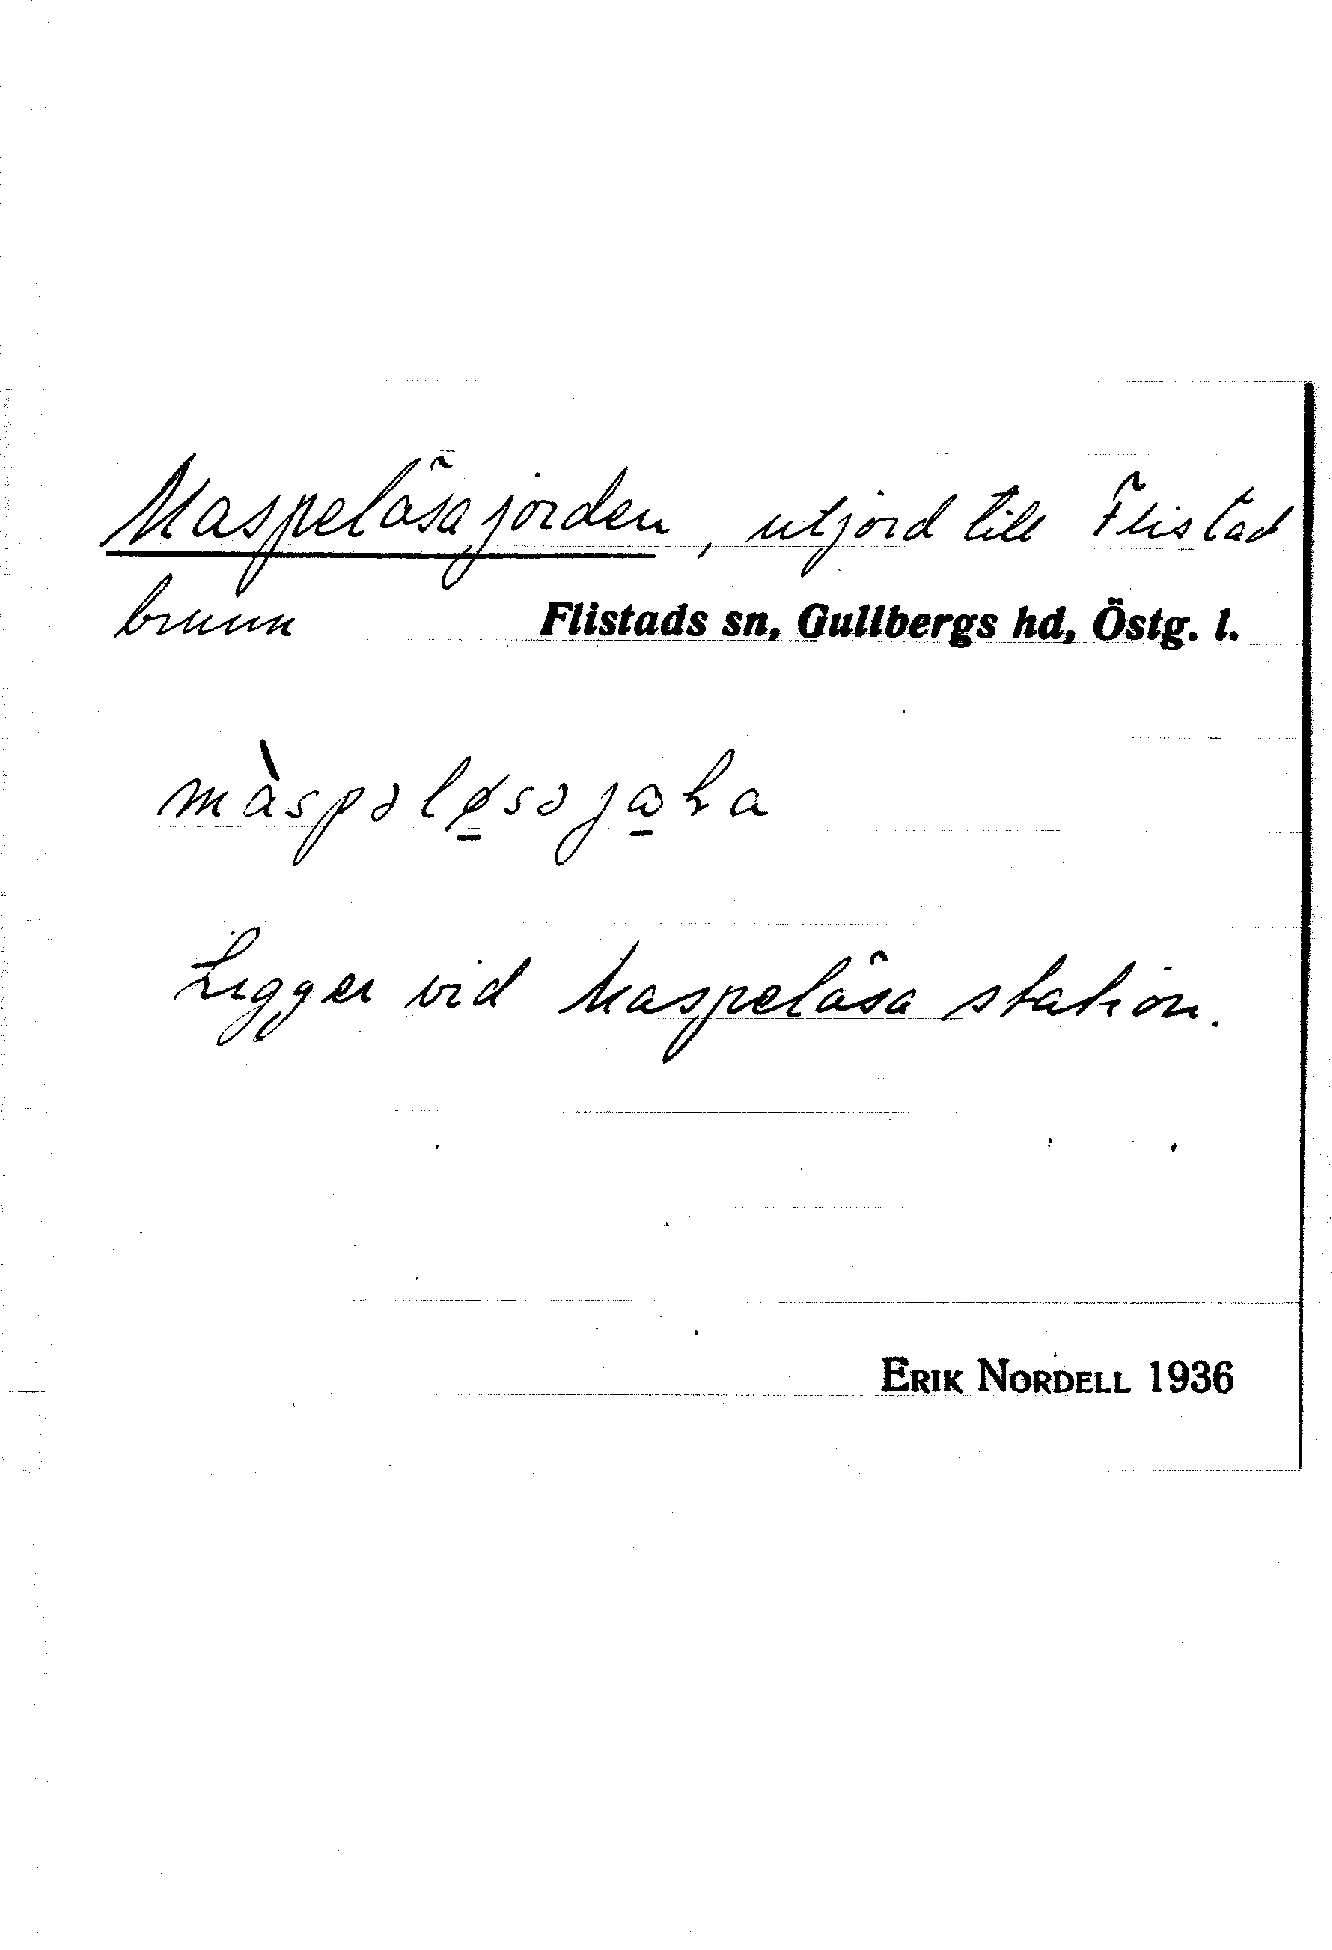 Maspelösajorden, utjord till Flistad
brunn
Flistads sn, Gullbergs hd, Östg. l.
Ligger vid Maspelösa station.
ERIK NORDELL 1936